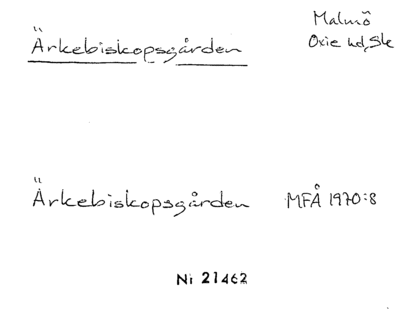 Ärkebiskopsgården
Malmö
Oxie hd, Sk
Ärkebiskopsgården MFÅ 1970:8
Ni 21462